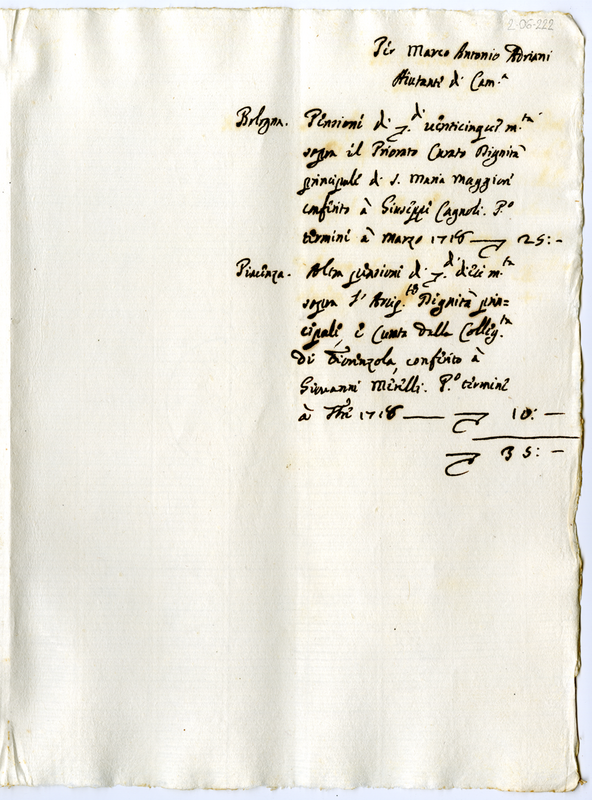 2-06-222
Per Marco Antonio Adriani
Aiutante di Cam.ª
Bologna. Pensione di ▽.di venticinque m.ta
sopra il Priorato Curato Dignità
principale di S. Maria Maggiore
conferito à Giuseppe Cagnoli. P.º
termine à Marzo 1718 — 25: –
Piacenza. Altra pensione di ▽.di dieci m.ta
sopra l' Arcip.to Dignità prin=
cipale, e Curata della Colleg.ta
di Fiorenzola, conferito à
Giovanni Merilli. P.º termine
à 1718 — 10: –
35: –